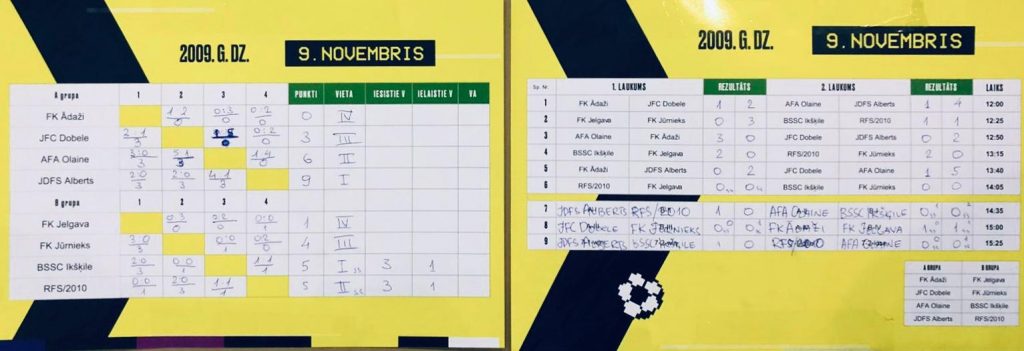 2009. G. DZ. 9. NOVEMBRIS
A grupa 1 2 3 4 PUNKTI VIETA IESISTIE V IELAISTIE V VA
FK Ādaži 1:2 0 0:3 0 0:2 0 0 IV
JFC Dobele 2:1 3 1:5 0 0:2 0 3 III
AFA Olaine 3:0 3 5:1 3 1:4 0 6 II
JDFS Alberts 2:0 3 2:0 3 4:1 3 9 I
B grupa 1 2 3 4
FK Jelgava 0:3 0 0:2 0 0:0 1 1 IV
FK Jūrnieks 3:0 3 0:0 1 0:2 0 4 III
BSSC Ikšķile 2:0 3 0:0 1 1:1 1 5 I 3 1
RFS/2010 0:0 1 2:0 3 1:1 1 5 II 3 1
2009. G. DZ. 9. NOVEMBRIS
Sp. Nr. 1. LAUKUMS REZULTĀTS 2. LAUKUMS REZULTĀTS LAIKS
1 FK Ādaži JFC Dobele 1 2 AFA Olaine JDFS Alberts 1 4 12:00
2 FK Jelgava FK Jūrnieks 0 3 BSSC Ikšķile RFS/2010 1 1 12:25
3 AFA Olaine FK Ādaži 3 0 JFC Dobele JDFS Alberts 0 2 12:50
4 BSSC Ikšķile FK Jelgava 2 0 RFS/2010 FK Jūrnieks 2 0 13:15
5 FK Ādaži JDFS Alberts 0 2 JFC Dobele AFA Olaine 1 5 13:40
6 RFS/2010 FK Jelgava 0 0 BSSC Ikšķile FK Jūrnieks 0 0 14:05
7 JDFS ALBERTS RFS/2010 1 0 AFA OLAINE BSSC IKŠĶILE 0 0 14:35
8 JFC DOBELE FK JŪRNIEKS 0 0 FK ĀDAŽI FK JELGAVA 1 1 15:00
9 JDFS ALBERTS BSSC IKŠĶILE 1 0 RFS/2010 AFA OLAINE 0 0 15:25
A GRUPA B GRUPA
FK Ādaži FK Jelgava
JFC Dobele FK Jūrnieks
AFA Olaine BSSC Ikšķile
JDFS Alberts RFS/2010